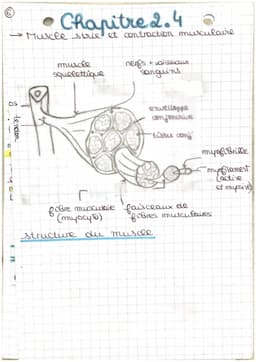 Chapitre 2.4
→ Muscle strié et contraction musculaire
muscle squelettique
nerfs + vaisseaux sanguins
enveloppe conjonctive
tissu conj
tendon
myofibrille
myofilament (actine et myosine)
fibre musculaire (myocyte)
faisceaux de fibres musculaires
structure du muscle